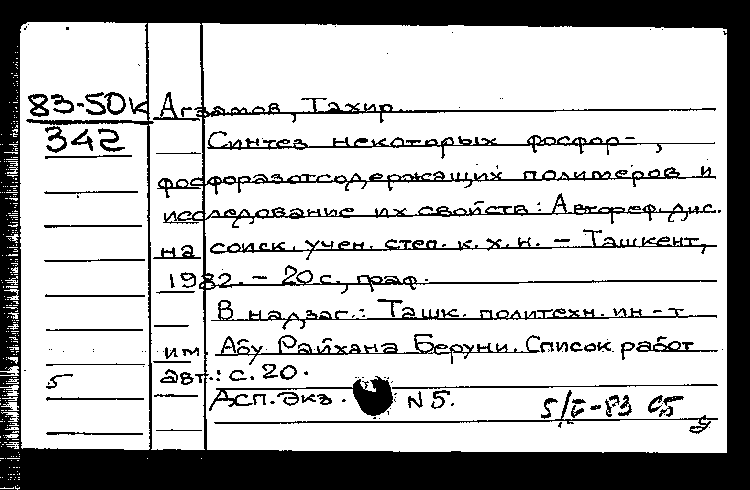 83-50к Агзамов, Тахир.
342 Синтез некоторых фосфор-,
фосфоразотсодержащих полимеров и
исследование их свойств: Автореф. дис.
на соиск. учен. степ. к. х. н. - Ташкент,
1982. - 20 с., граф.
В надзаг.: Ташк. политехн. ин-т
им. Абу Райхана Беруни. Список работ
5 авт.: с. 20.
Асп. Экз. N 5.